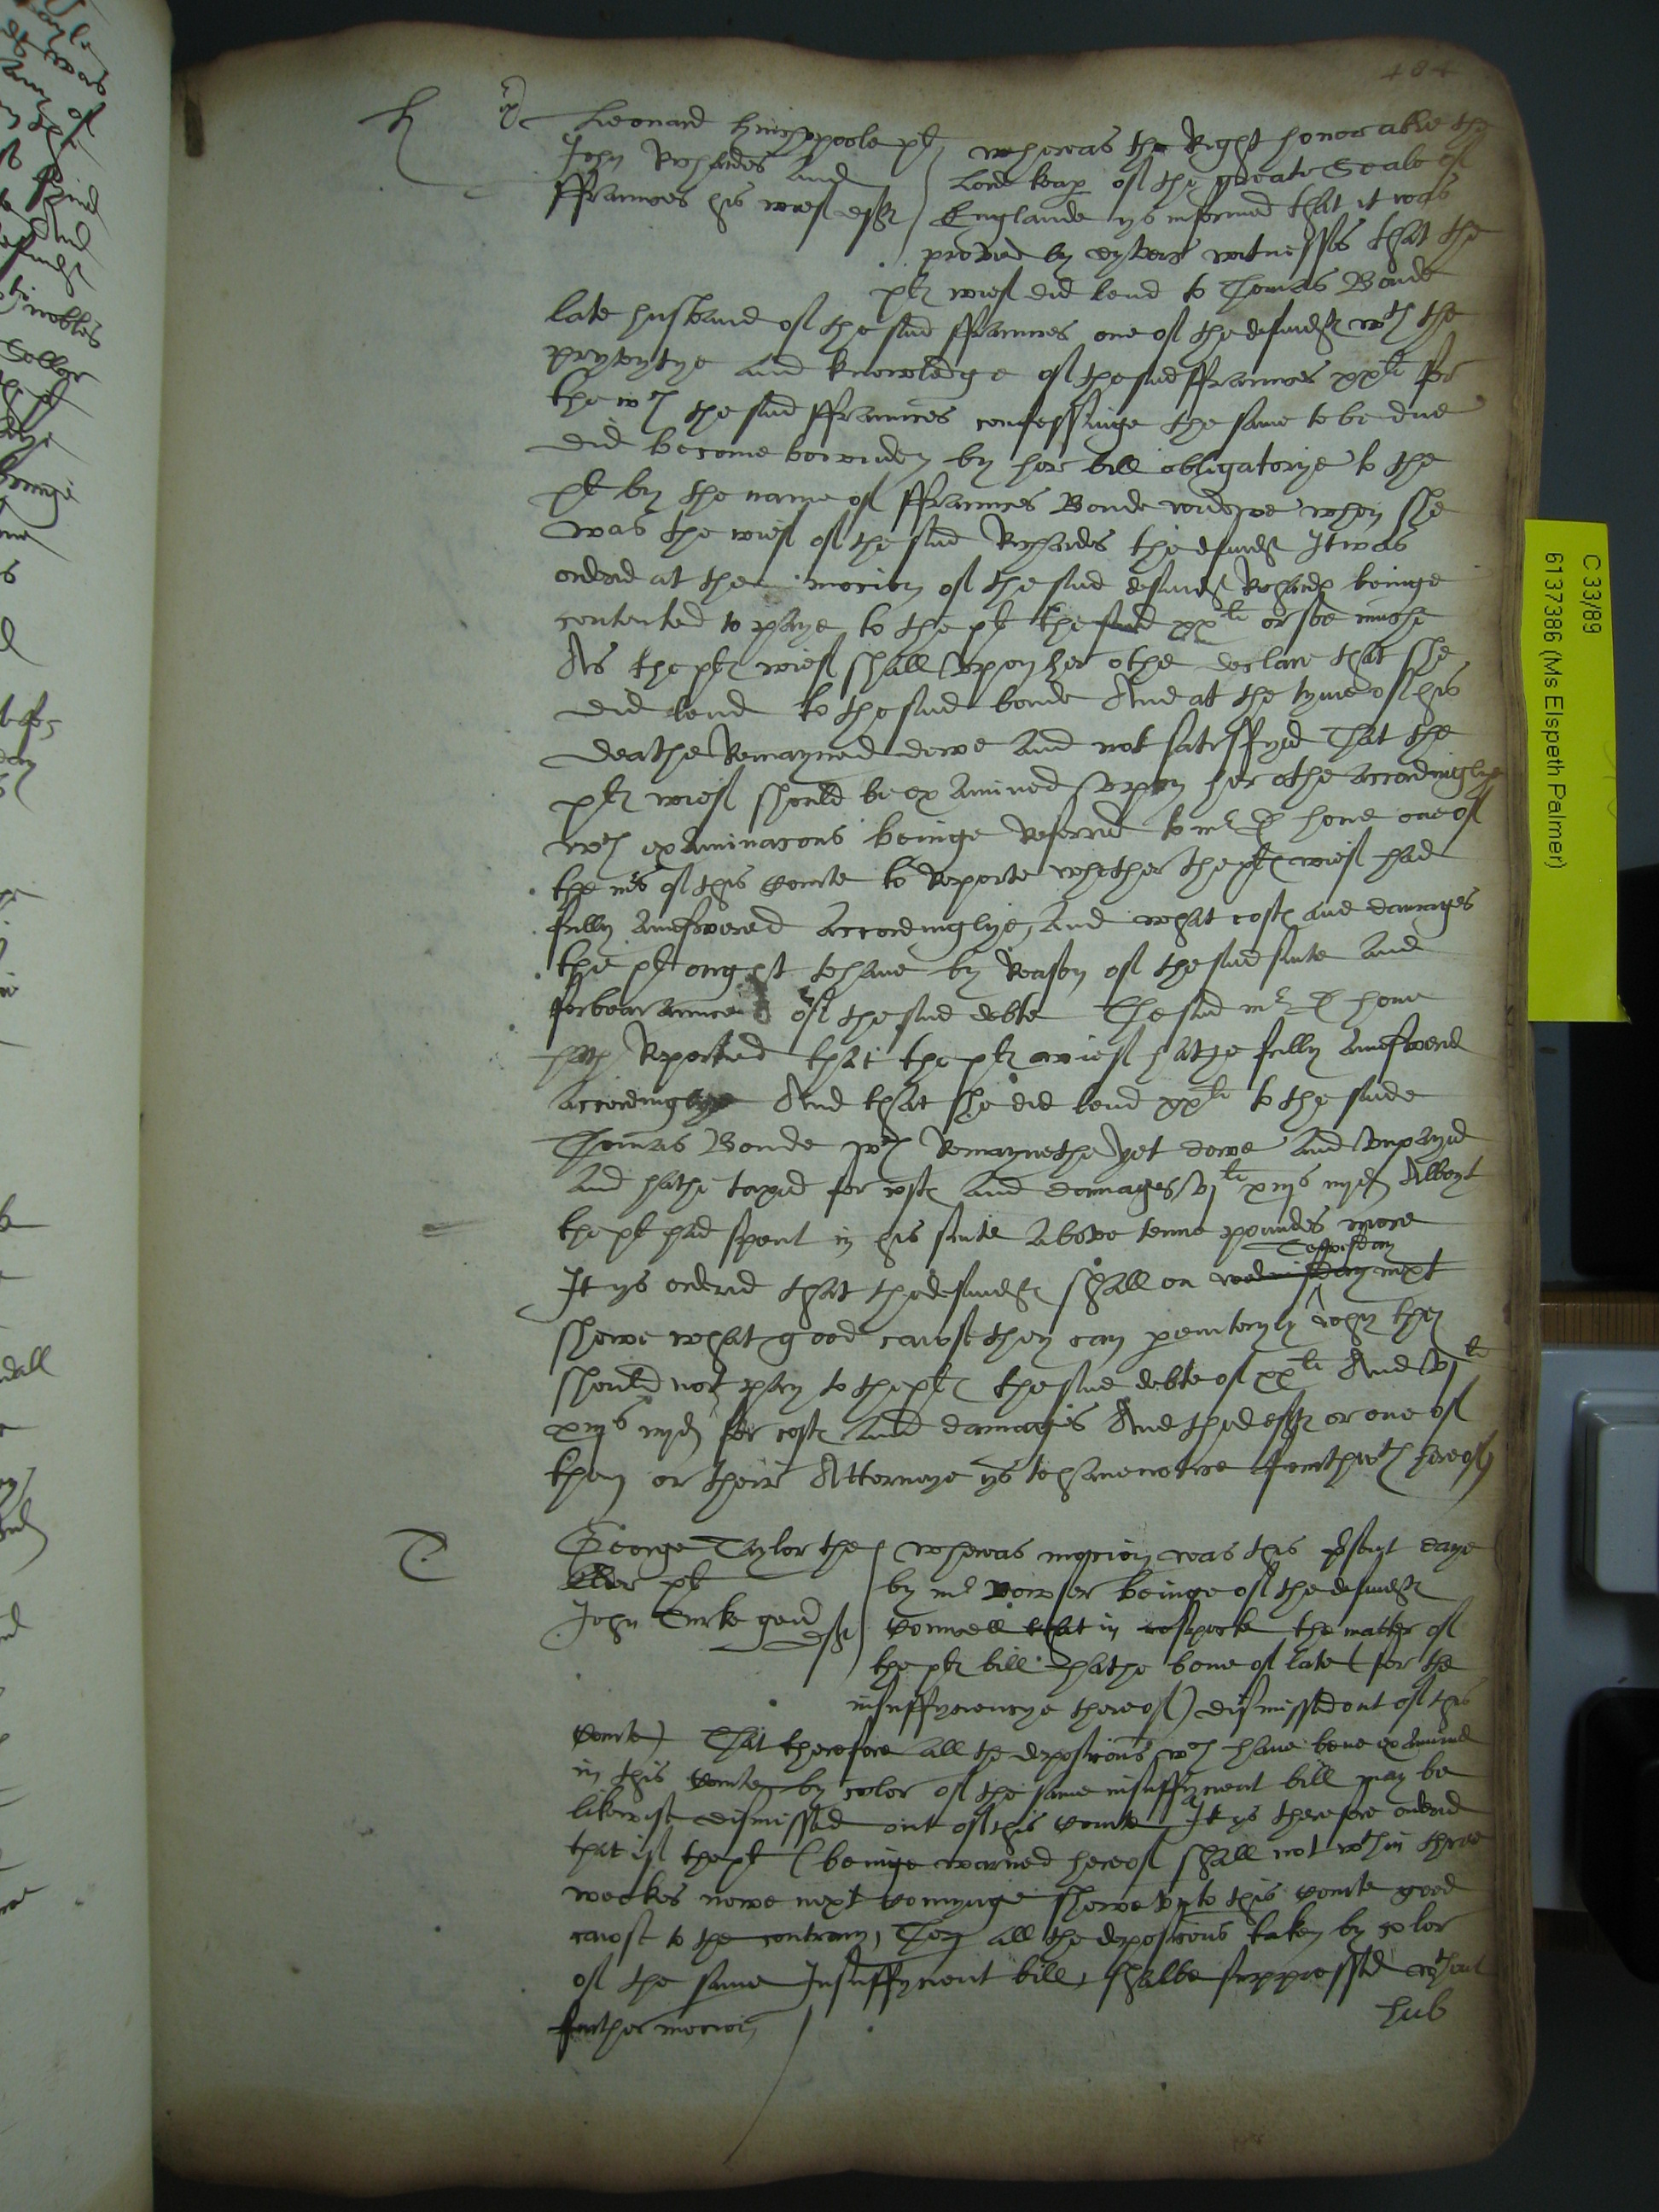 484
h
Leonard hinchpoole plt
John Richardes and
ffraunces his wief deftes
whereas the Right honorable the
Lord keap of the greate Seale of
Englande ys informed that it was
proved by dyvers witnesses that the
pltes wief did lend to Thomas Bonde
late husband of the said ffraunces one of the defendtes wth the
pryvytye and knowledge of the said ffraunces xxli for
the wch the said ffraunces confessinge the same to be due
did become bounden by her bill obligatorye to the
plt by the name of ffraunces Bonde widowe when she
was the wief of the said Richardes the defendt It was
ordred at the mocion of the said defendt Richardes beinge
contented to paye to the plt the said xxli or soe muche
As the pltes wief shall vpon her othe declare that she
did lend to the said bonde And at the tyme of his
deathe Remayned dewe and not satisffyed That the
pltes wief should be examined vpon her othe accordinglye
wch examinacons beinge Referred to mr D hone one of
the mrs of this Courte to Reporte whether the pltes wief had
fully aunswered accordinglye, and what costes and damages
the plt ought to have by Reason of the said suite and
forbearaunce of the said debte The said mr D hone
hath Reported that the pltes wief hathe fully aunswered
accordinglye And that she did lend xxli to the saide
Thomas Bonde wch Remaynethe yet dewe and vnpayed
and hathe taxed for costes and damages vjli xiijs iiijd Albeyt
the plt had spent in his suite above tenne poundes more
It ys ordred that the defendtes shall on wednisday next
Tewsday
shewe what good cause they can peremtoryly why they
should not pay to the plt the said debte of xxli And vjli
xiijs iiijd for costes and damages And the deftes or one of
them or their Attorneye ys to have notice forthwth hereof
T
George Taylor the
elder plt
John Turke gend
deft
whereas mocion was this psent daye
by mr bowser beinge of the defendtes
Councell that in respecte the matter of
the pltes bill hathe bene of late (for the
insuffyciencye thereof) dismissed out of this
Courte) That therefore all the deposicions wch have bene examined
in this Courte by color of the same insuffycient bill may be
likewise dismissed out of this Courte It ys therefore ordred
that if the plt (beinge warned hereof shall not wthin three
weekes nowe next Comynge shewe vnto this Courte good
cause to the contrary, Then all the deposicions taken by color
of the same Insuffycient bill, shalbe suppressed wthout
further mocion
hub
C 33/89
6137386 (Ms Elspeth Palmer)